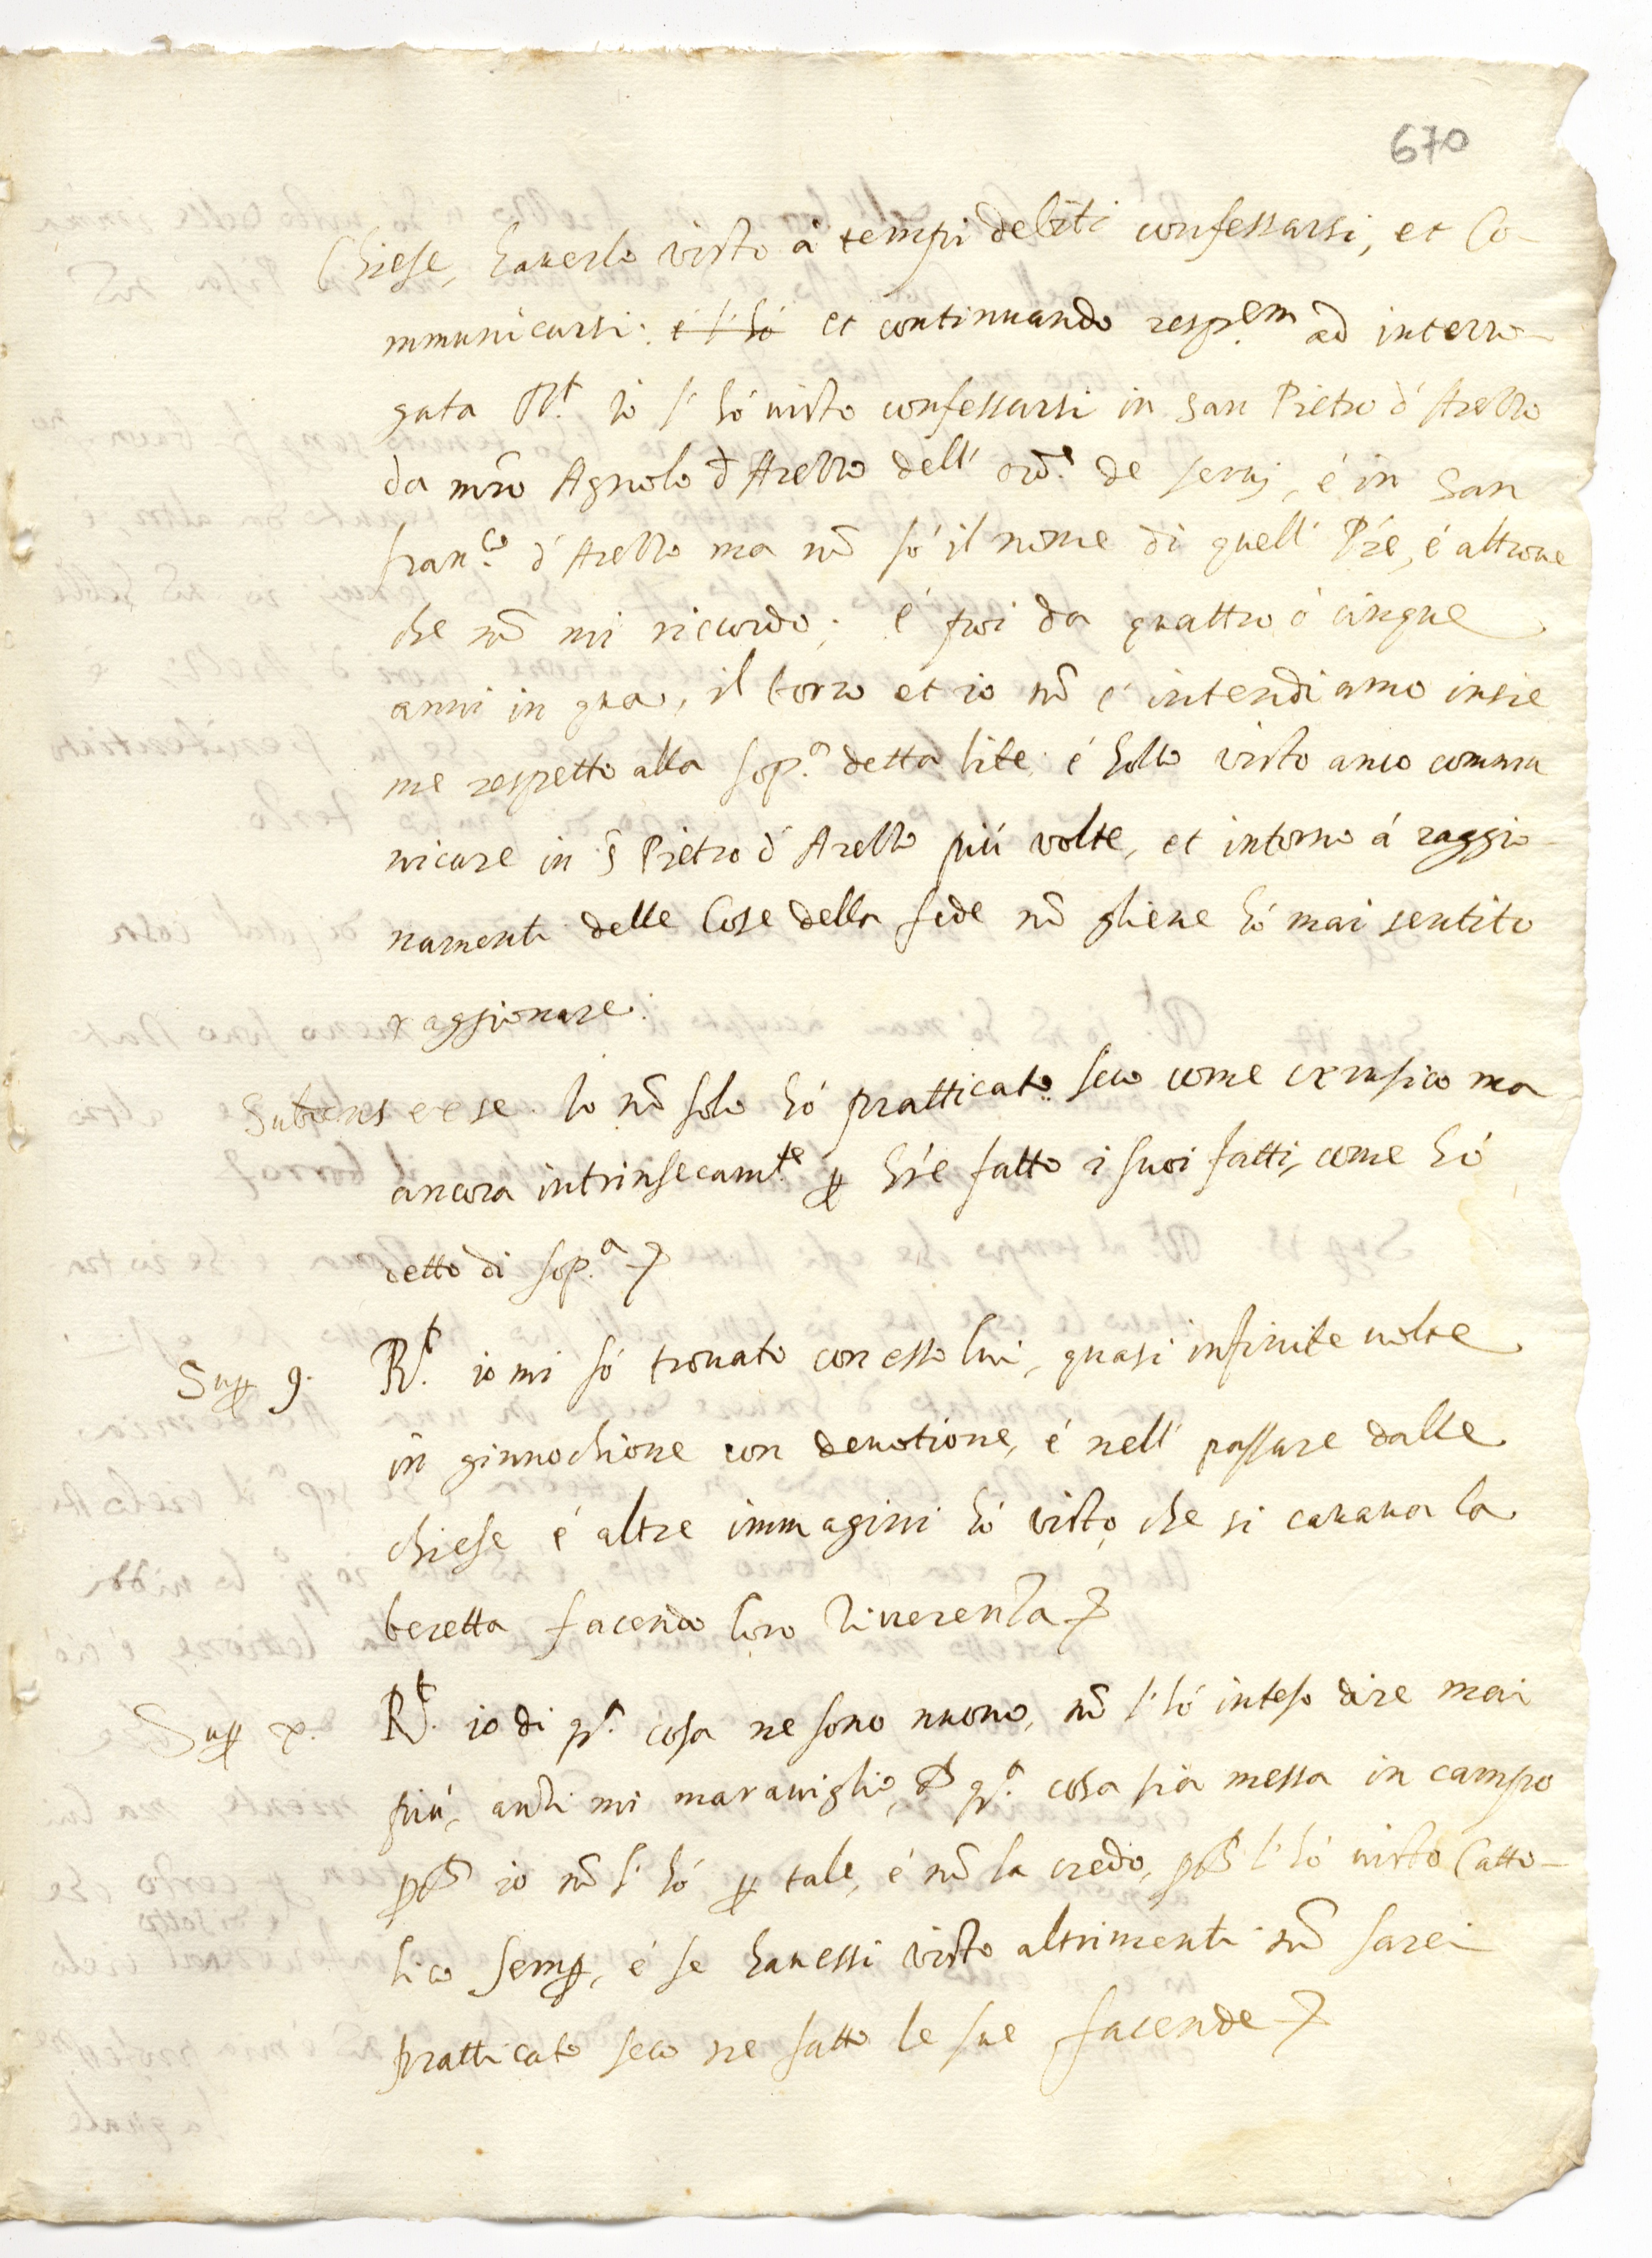 670
Chiese, hauerlo visto à tempi debiti confessarsi, et Co-
mmunicarsi. é l'hó et continuando resp.em ad interro-
gata R.t io l'hó uisto confessarsi in San Pietro d'Arezzo
da mro Agnolo d'Arezzo dell' ord.e de serui, é in San
fran.co d'Arezzo ma nō só il nome di quell' Pre, é altroue
che nō mi ricordo; é poi da quattro ó cinque
anni in qua, il borro et io nō c'intendiamo insie
me respetto alla sop.a detta lite. é hollo visto anco commu
nicare in S Pietro d'Arezzo più volte, et intorno á raggio-
namenti delle Cose della fede nō gliene hó mai sentito
raggionare.
Io nō solo hó pratticato seco come cerusico ma
ancora intrinsecam.te ꝑ hře fatto i suoi fatti, come hó
detto di sop.a
Suꝑ 9. R.t io mi só trouato con esso lui, quasi infinite uolte
in ginnochione con deuotione, é nell' passare dalle
chiese é altre immagini hó visto che si cauaua la
beretta facendo loro Riuerenza
Suꝑ x. R.t io di q.a cosa ne sono nuouo, nō l'hó inteso dire mai
più, anzi mi marauiglio, ch q.a cosa sia messa in campo
ꝑch io nō l'hó ꝑ tale, é nō la credo, ꝑch l'hó uisto Catto-
lico semꝑ, é se hauessi visto altrimenti nō sarei
pratticato seco ne fatto le sue facende